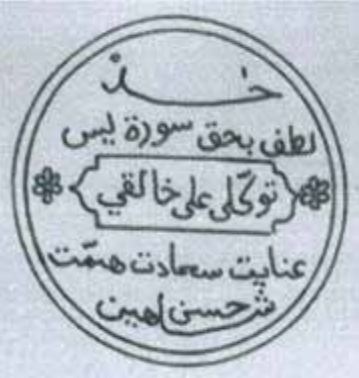 خذ
لطف بحق سورة يس
توكّلى على خالقي
عنايت سعادت همّت
حسن